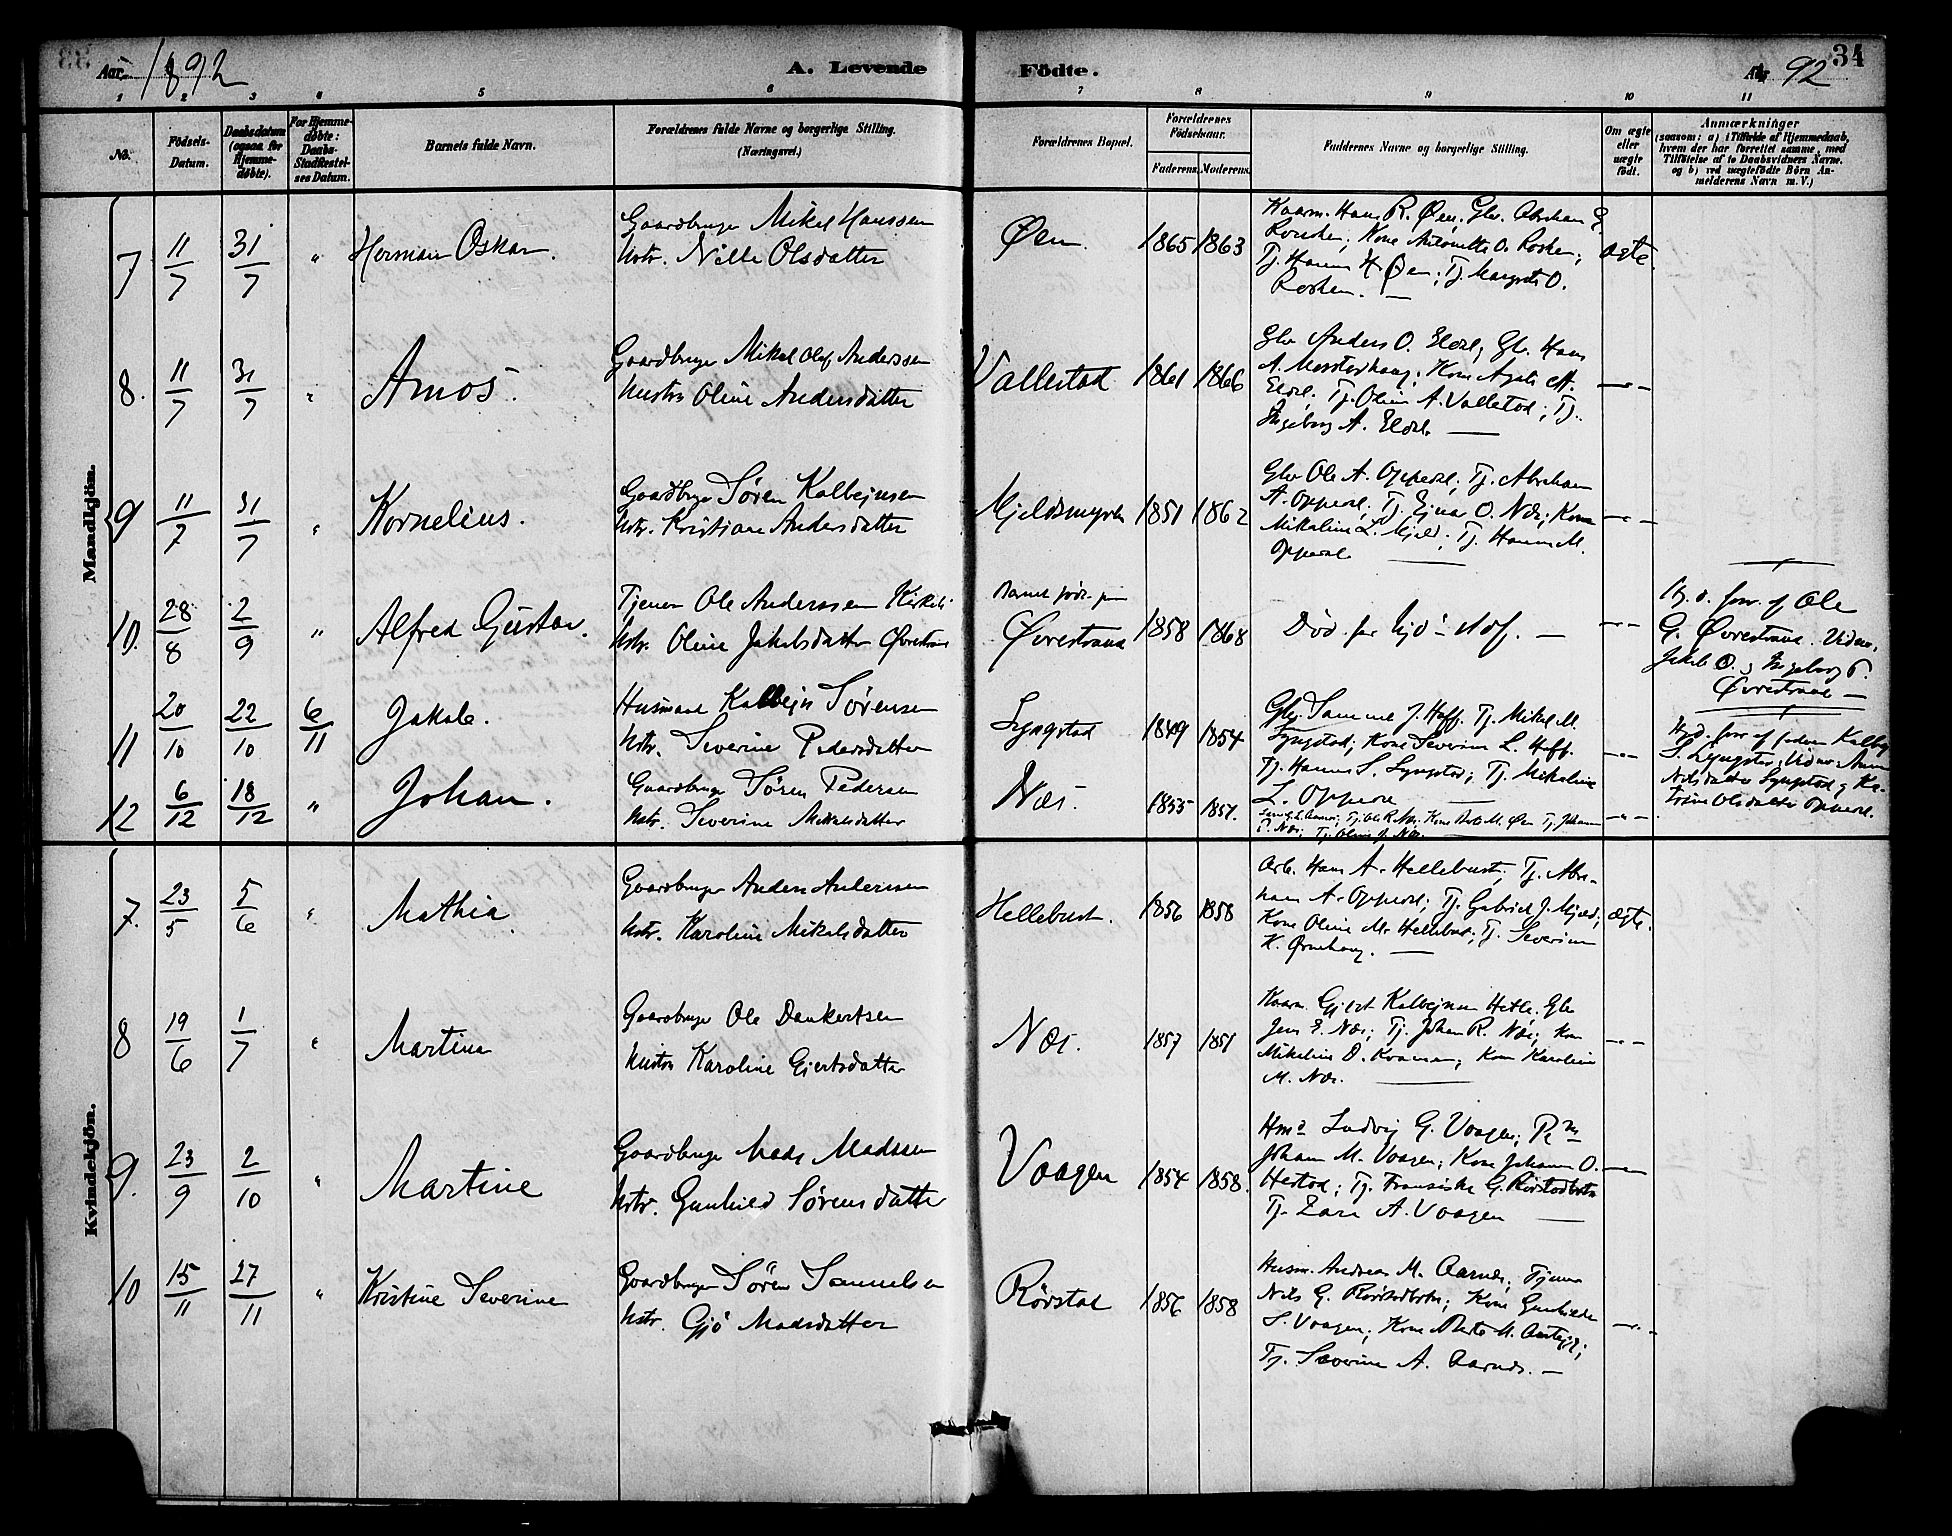 Aar 1892
A. Levende Födte.
Aar 92
34
1 2 3 4 5 6 7 8 9 10 11
No.
Födsels-Datum.
Daabsdatum (ogsaa for Hjemmedøbte).
For Hjemmedøbte: Daabs-Stadfæstelses Datum.
Barnets fulde Navn.
Forældrenes fulde Navne og borgerlige Stilling. (Næringsvei.)
Forældrenes Bopæl.
Forældrenes Födselsaar.
Faderens. Moderens.
Faddernes Navne og borgerlige Stilling.
Om ægte eller uægte födt.
Anmærkninger
(saasom: a) i Tilfælde af Hjemmedaab, hvem der har forrettet samme, med Tilföielse af to Daabsvidners Navne. og b) ved uægtefödte Börn Anmelderens Navn m. V.)
Mandkjön.
7 11/7 31/7 " Herman Oskar. Gaardbruger Mikel Hanssen
Hstr. Nille Olsdatter
Øen. 1865 1863
Kaarm. Hans R. Øen; Gbr. Abraham
Kone Antonette O.
Tj. Hanna H. Øen; Tj. Margrete O.
ægte.
8. 11/7 31/7 " Amos. Gaardbruger Mikal Olaf Anderssen
Hustru Oline Andersdatter
Vallestad 1861 1866
Gbr Anders O. Gbr. Hans
A. Kone
Tj. Oline A. Vallestad; Tj.
Ingeborg A.
—"—
9 11/7 31/7 " Kornelius. Gaardbr Søren Kolbejnsen
Hstr. Kristiane Andersdatter
Mjeldsmyren 1851 1862
Gbr Ole A. Oppedal; Tj. Abraham
A. Oppedal; Tj. Ejnar O. Næs; Kone
Mikaline L. Mjeld; Tj. Hanna M.
Oppedal
—"—
10. 28/8 2/9 " Alfred Gustav. Tjener Ole Anderssen
Hstr. Oline Jakobsdatter Øvrestrand
Barnet født paa
Øvrestrand 1858 1868
Død før —
—"—
Hj. d. forr. af Ole
G. Øvrestrand. Vidner
Jakob O. og Ingeborg P.
Øvrestrand —
11 20/10 22/10 6/11 Jakob. Husmand Kolbejn Sørensen
Hstr. Severine Pedersdatter
Lyngstad 1849 1854
Gbr. Samuel J. Hoff. Tj. Mikel M.
Lyngstad; Kone Severine L. Hoff.
Tj. Hanna S. Lyngstad; Tj. Mikaline
L. Oppedal
—"—
Hjd. forr af faderen Kolbejn
S. Lyngstad; Vidner Anna
Nilsdatter Lyngstad og Ka-
trine Olsdatter Oppedal.
12 6/12 18/12 " Johan. Gaardbruger Søren Pedersen
Hstr. Severine Mikalsdatter
Næs. 1855 1857.
—"—
Kvindekjön.
7. 23/5 5/6 " Mathea. Gaardbruger Anders Anderssen
Hstr. Karoline Mikalsdatter
Hellebust. 1856 1858
Arb. Hans A. Hellebust; Tj. Abra-
ham A. Oppedal; Tj. Gabriel J. Mjeld;
Kone Oline M. Hellebust; Tj. Severine
K. Ørnehaug. —
ægte.
8 19/6 1/7 " Martina Gaardbruger Ole Dankertsen
Hustru Karoline Gjertsdatter
Næs. 1857 1851
Kaarm. Gjert Kolbejnsen Gbr
Jens E. Næs; Tj. Johan R. Næs; Kone
Mikaline D. Kvamen; Kone Karoline
M. Næs.
—"—
9. 23/9 2/10 " Martine Gaardbruger Mads Madssen
Hstr. Gunhild Sørensdatter
Vaagen 1854 1858.
Hmd Ludvig G. Vaagen;
Johan M. Vaagen; Kone Johanna O.
Hestad; Tj. Fransiska G. Rørstadbotn
Tj. A. Vaagen —
—"—
10 15/11 27/11 " Kristine Severine Gaardbruger Søren Samuelsen
Hstr. Gjø Madsdatter
Rørstad 1856 1858
Husm. Andreas M. Aarnes; Tjener
Nils G. Rørstadbotn; Kone Gunhild
S. Vaagen; Kone M.
Tj. Severine A. Aarnes. —
—"—